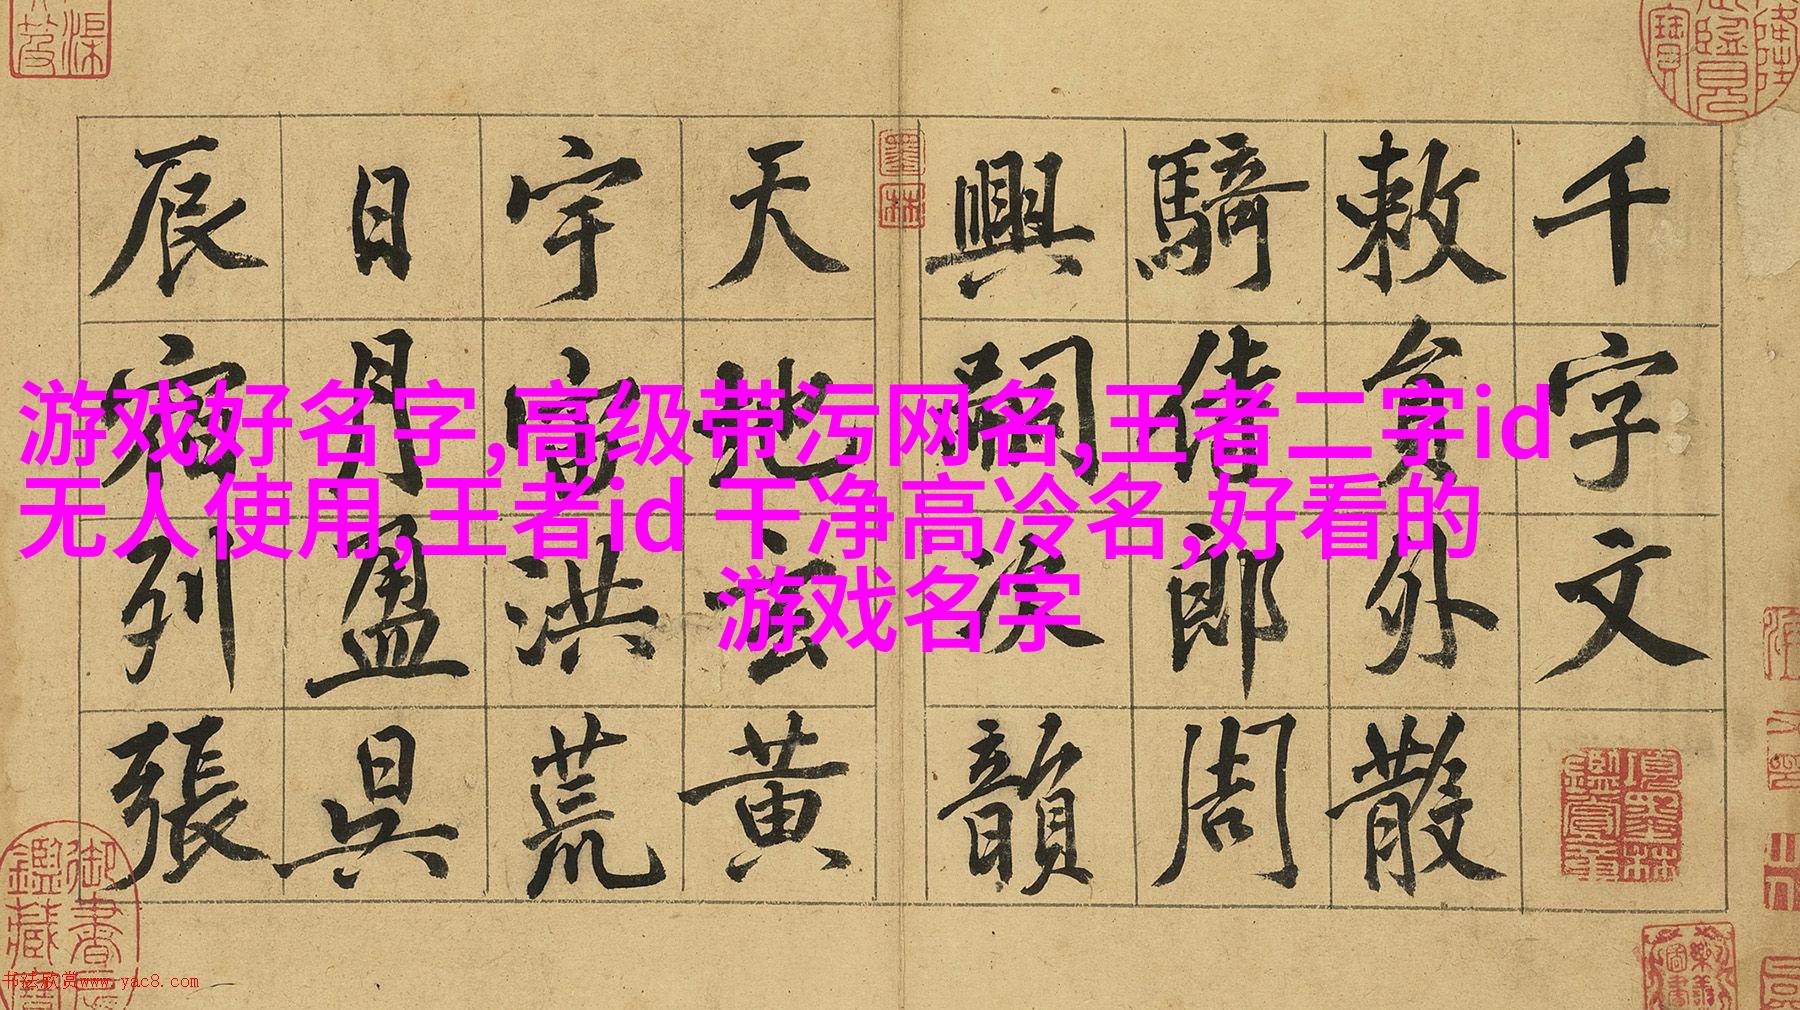 游戏好名字,高级带污网名,王者二字id
无人使用,王者id 干净高冷名,好看的
游戏名字
千字文
敕員外散
騎侍郎周
興嗣次韻
天地玄黄
宇宙洪荒
日月盈昃
辰宿列張
墨林
項墨林鑑賞章
书法欣赏www.yac8.com